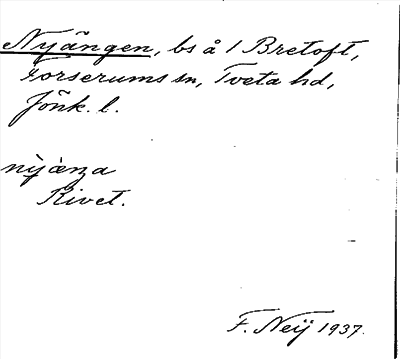 Nyängen, bs å 1 Bretoft,
Forserums sn, Tveta hd,
Jönk. l.
nỳjæ̀nga
Rivet.
F. Neij 1937.